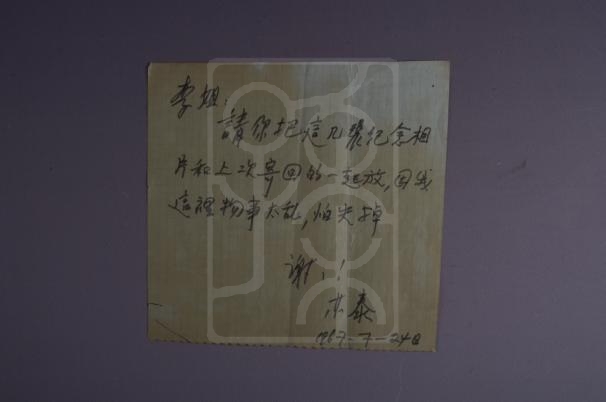 李姐：
請你把這几張紀念相
片和上次寄回的一起放，因我
這裡物事太乱，怕失掉
谢谢！
泰
1967-7-24日